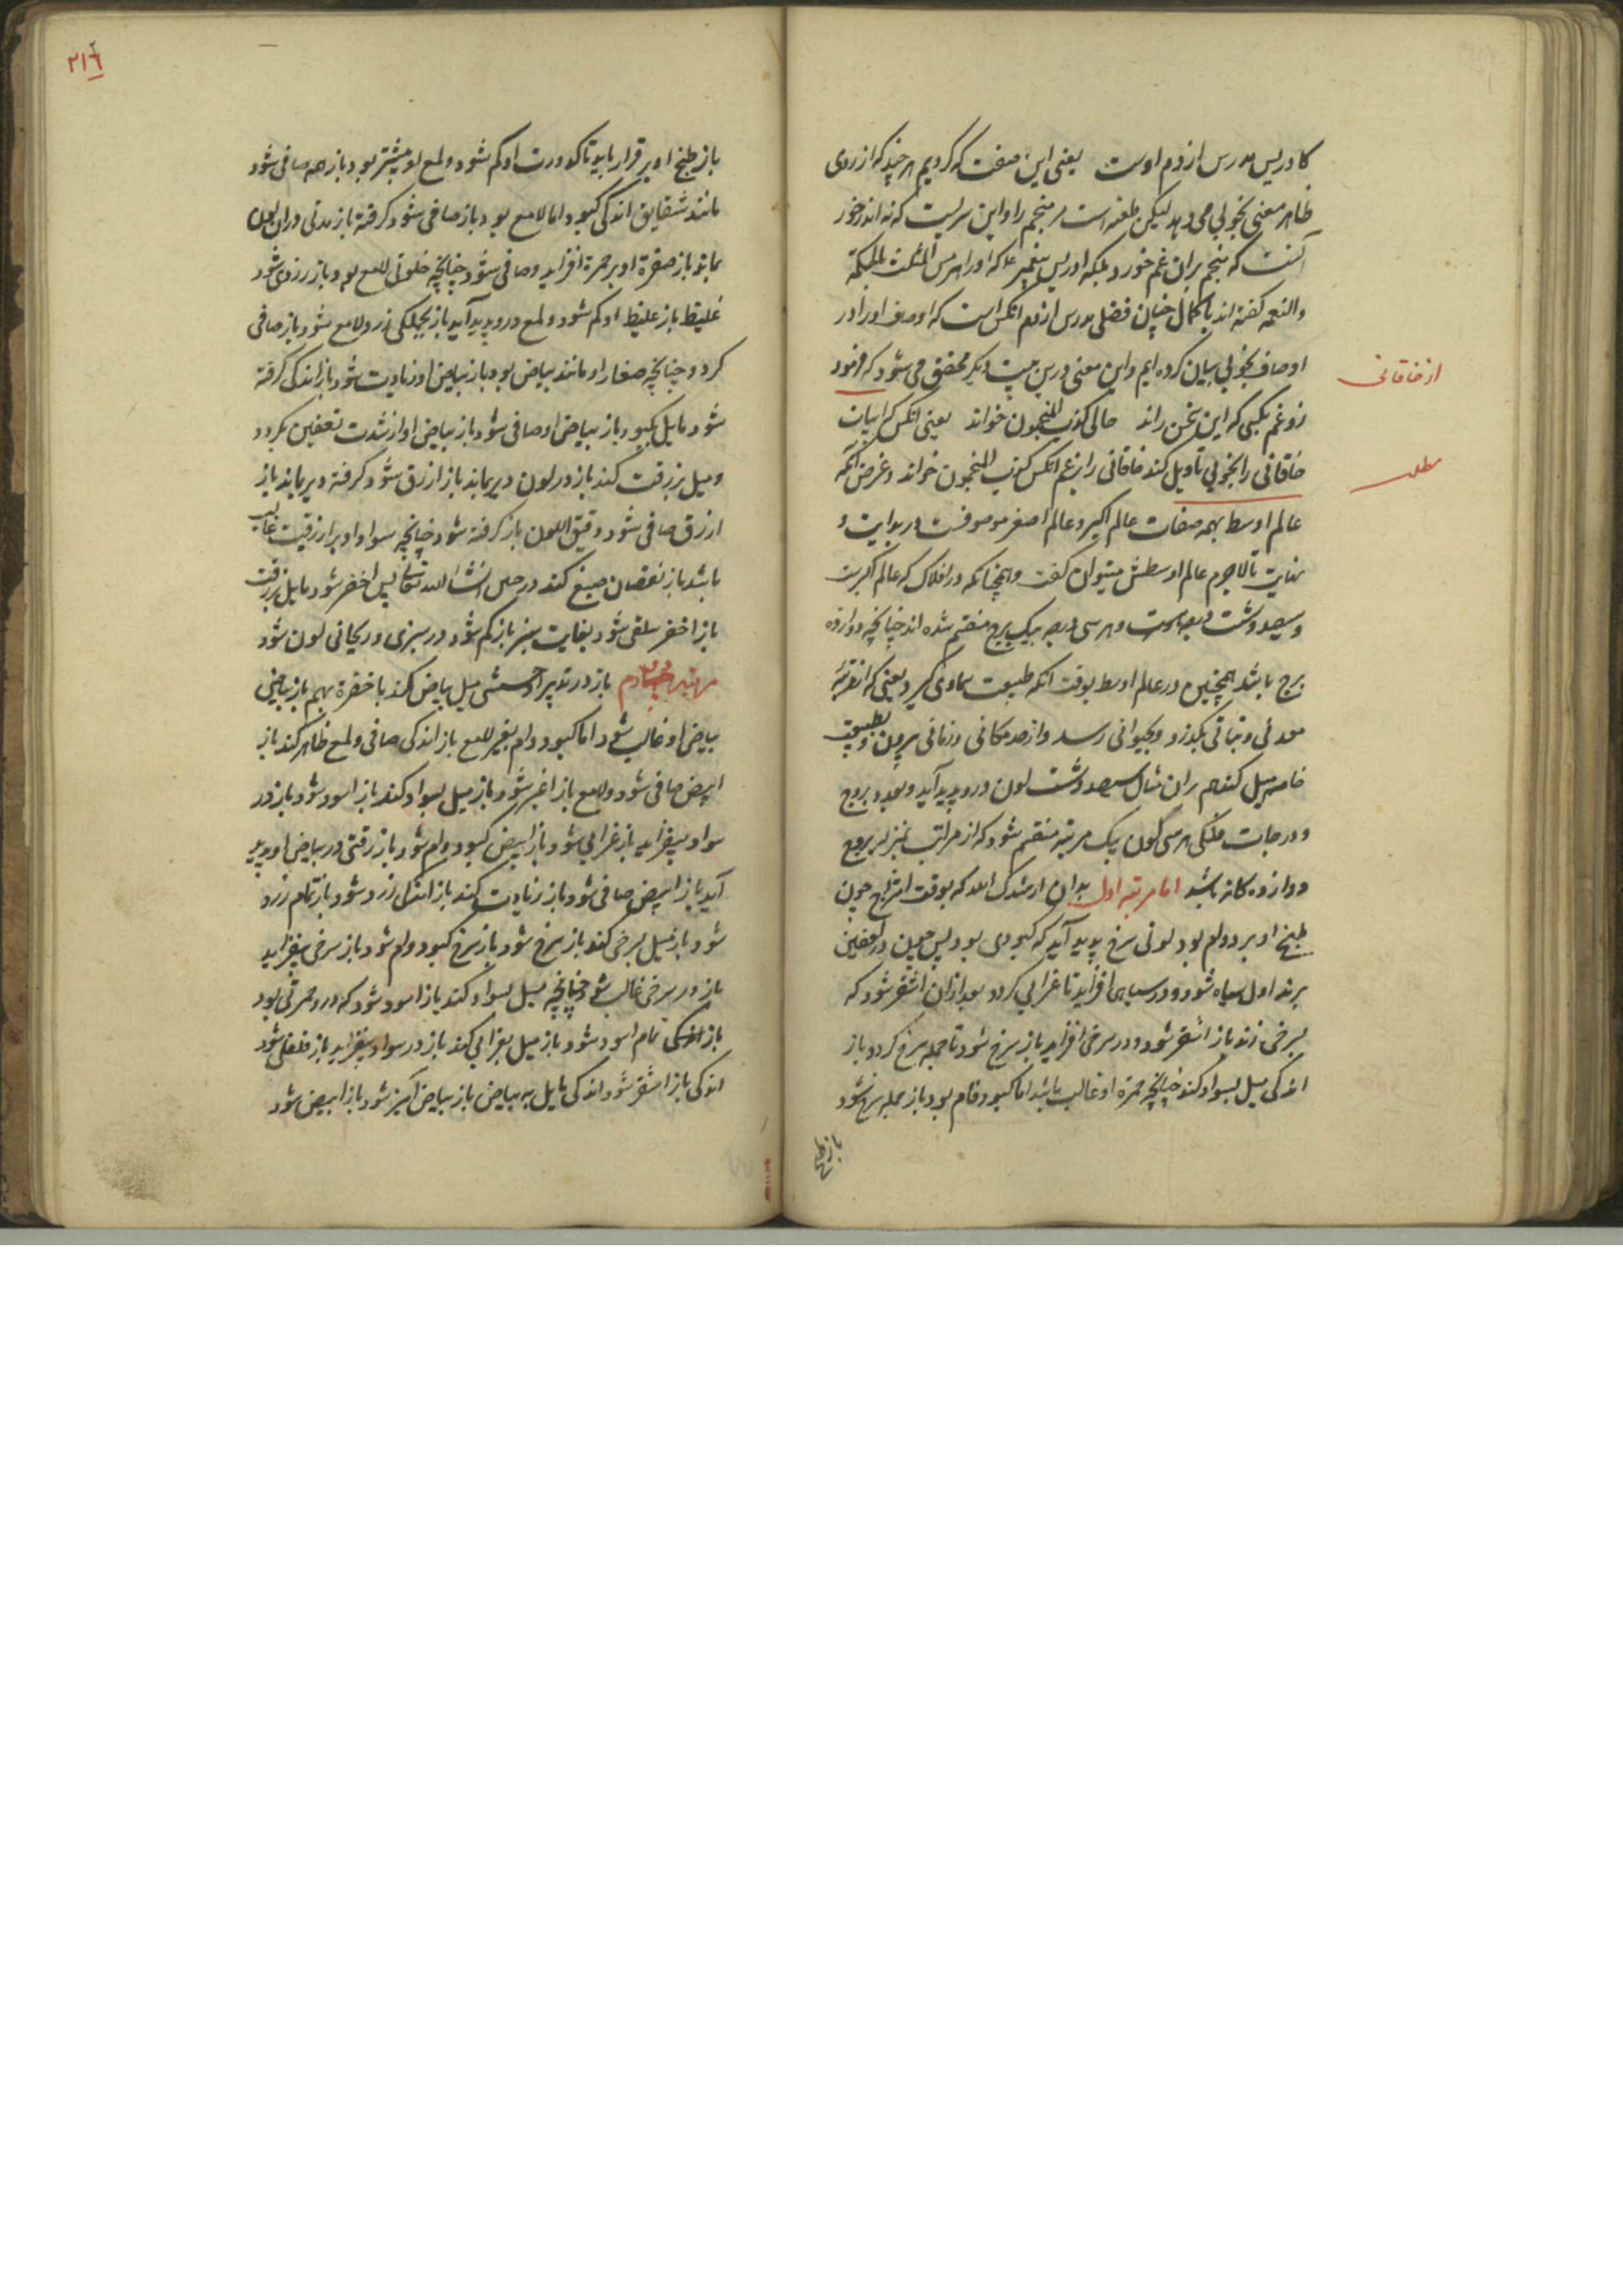 كادريس مدرس از دم اوست یعنی این صفت که کردیم هر چند که از روی
ظاهر معنی بخوبی می دهد لیکن طعنه است بر منجم را و این سریست که نه اندر خور
آنست که منجم بران غم خورد بلکه ادریس پیغمبر علا که او را هرمس المثلث بالحکمة
والنعمه گفته اند با کمال چنان فضلی مدرس از دم آنکس است که اوصاف او را در
اوصاف بخوبی بیان کرده ایم و این معنی درین بیت دیگر محقق می شود که فرمود
از خاقانی
زو غم بکسی که این سخن راند حالی کذب المنجمون خواند یعنی آنکس که ابیات
خاقانی را بخوبی تاویل کند خاقانی را بزعم آنکس کذب المنجمون خواند و غرض آنکه
مطلب
عالم اوسط بهمه صفات عالم اکبر و عالم اصغر موصوفست در بدایت و
نهایت تا لاجرم عالم اوسطش میتوان گفت و همچنانکه در افلاک که عالم اکبرست
و سیصد و شست درجه است و هر سی درجه بیک برج منقسم شده اند چنانچه دوازده
برج باشد همچنین در عالم اوسط بوقت آنکه طبیعت سماوی گیرد یعنی که از مرتبه
معدنی و نباتی بگذرد و بحیوانی رسد و از حد مکانی و زمانی بیرون و بطبیعت
خامسه میل کند هم بران مثال سیصد و شست لون درو پدید آید و بعدد بروج
و درجات فلکی هر سی گون بیک مرتبه منقسم شود که از مراتب بمنزله بروج
دوازده کانه باشد اما مرتبه اول بدان ارشدک الله که بوقت امتزاج چون
طبخ او بر دوام بود لونی سرخ پدید آید که کبودی بود پس چون در تعفین
برند اول سیاه شود و در سیاهی افزاید تا غرابی گردد بعد ازان اشقر شود که
بسرخی زند باز اشقر شود و در سرخی افزاید باز سرخ شود تا جمله سرخ گردد باز
اندکی میل بسواد کند چنانچه حمره او غالب باشد اما کبود فام بود باز جمله سرخ شود
باز طبخ
٢١٦
باز طبخ او بر قرار باید تا کدورت او کم شود و لمع او بیشتر بود باز هم صافی شود
مانند شقایق اندکی کبود اما لامع بود باز صافی شود گرفته باز مدتی در آن لون
بماند باز صفرة او بر حمرة افزاید و صافی شود چنانچه خلوقی للمع بود باز زردی شود
غلیظ باز غلیظ او کم شود و لمع درو پدید آید باز بجملگی زرد و لامع شود باز صافی
گردد چنانچه صفار او مانند بیاض بود باز بیاض او زیادت شود باز اندکی گرفته
شود مایل بکبود باز بیاض او صافی شود باز بیاض او از شدت تعفین بگردد
و میل بزرقت کند باز در لون دیر بماند باز ازرق شود گرفته و دیر بماند باز
ازرق صافی شود دقیق اللون باز گرفته شود چنانچه سواد او بر ازرقیت غالب
باشد باز نقصان صبغ کند در حین انشاء الله تعالی پس اخضر شود مایل بزرقت
باز اخضر سلقی شود بغایت سبز باز کم شود در سبزی و ریحانی لون شود
مرتبه دوم باز در تدبیر میل بیاض کند با خضرة بهم باز بیاض
بیاض او غالب شود اما کبود و ام بغیر للمع باز اندکی صافی و لمع ظاهر کند باز
ابیض صافی شود و لامع باز اغبر شود باز میل بسواد کند باز اسود شود باز در
سواد بیفزاید باز غرابی شود باز ابیض کبود و ام شود باز زرقتی در بیاض او پدید
آید باز ابیض صافی شود باز زیادت کند باز اندک زرد شود باز تمام زرد
شود باز میل بسرخی کند باز سرخ شود باز سرخ کبود و ام شود باز سرخی بیفزاید
باز در سرخی غالب شود چنانچه میل بسواد کند باز اسود شود که درو حمرتی بود
باز اندکی تمام اسود شود باز میل بغرابی کند باز در سواد بیفزاید باز فلفلی شود
اندکی باز اشقر شود اندکی مایل به بیاض باز بیاض آمیز شود باز ابیض شود